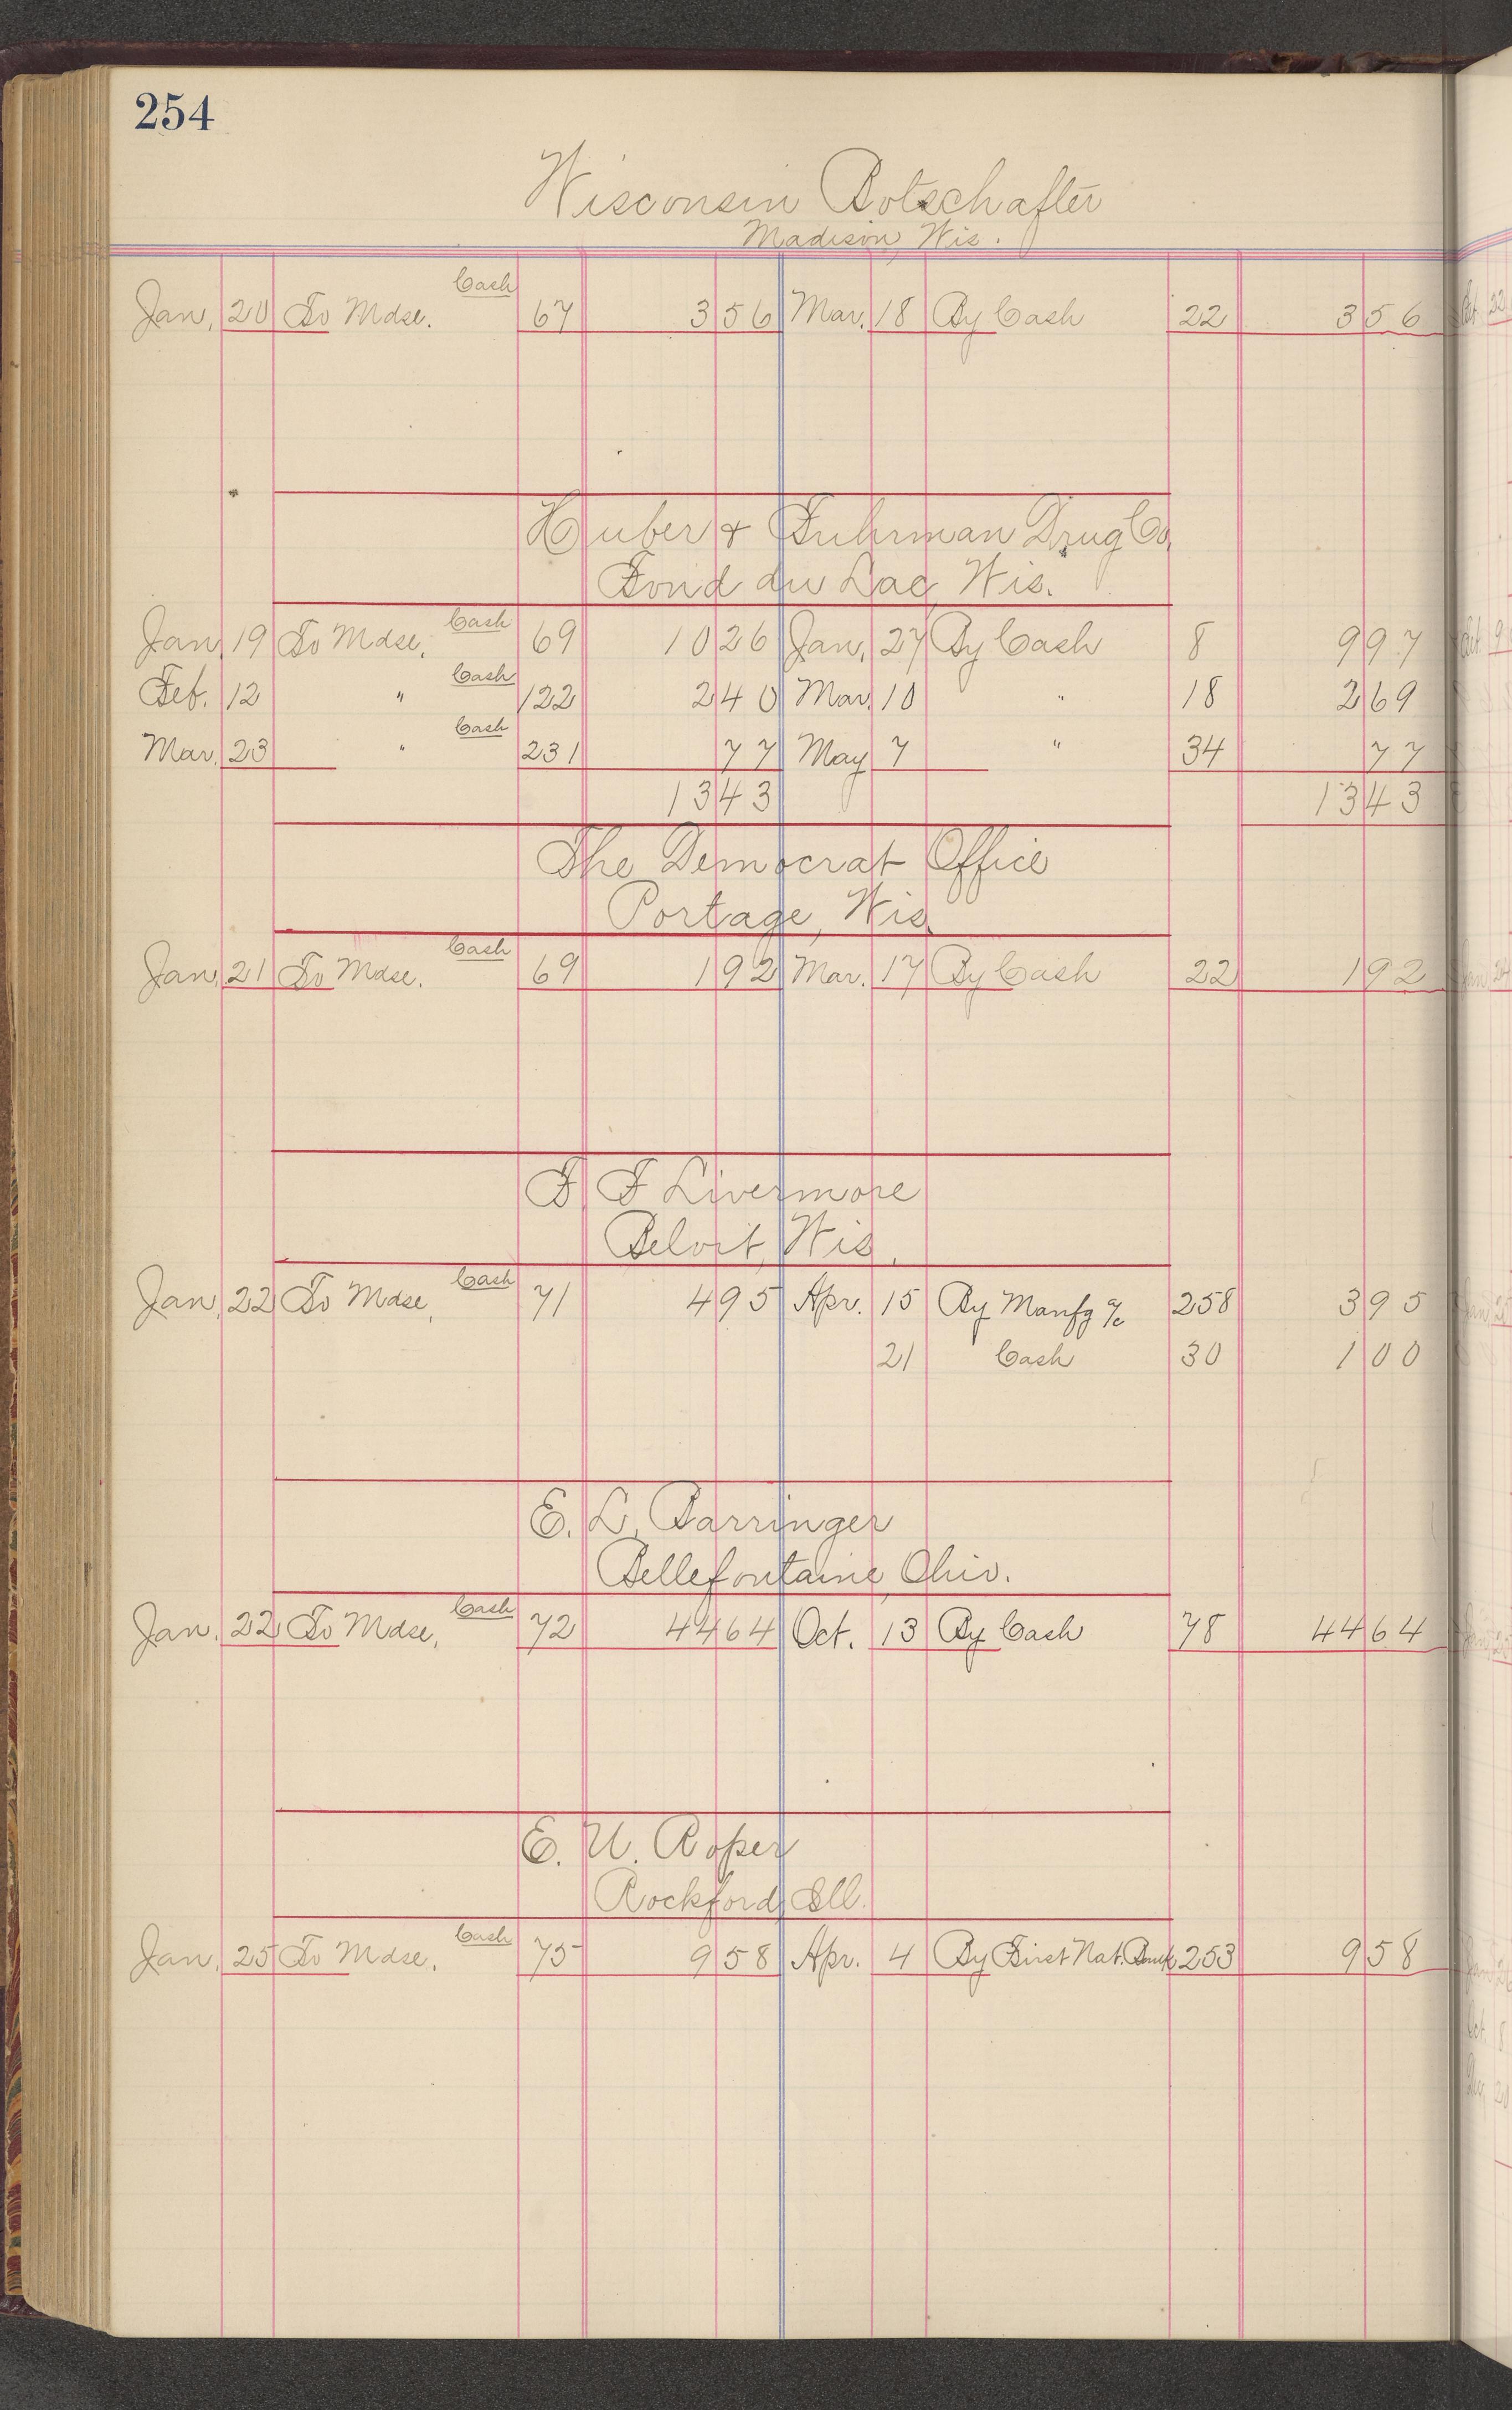 254
Wisconsin Botschafter
Madison, Wis.
Cash
Jan. 20 To Mdse. 67 3 56 Mar. 18 By Cash 22 3 56
Huber & Fuhrman Drug Co.
Fond du Lac, Wis.
Cash
Jan. 19 To Mdse. 69 10 26 Jan. 27 By Cash 8 9 97
Cash
Feb. 12 " 122 2 40 Mar. 10 " 18 2 69
Cash
Mar. 23 " 231 77 May 7 " 34 77
13 43 13 43
The Democrat Office
Portage, Wis.
Cash
Jan. 21 To Mdse. 69 1 92 Mar. 17 By Cash 22 1 92
F. F Livermore
Beloit, Wis.
Cash
Jan. 22 To Mdse. 71 4 95 Apr. 15 By Manfg a/c 258 3 95
21 Cash 30 1 00
E. L. Barringer
Bellefontaine, Ohio.
Cash
Jan. 22 To Mdse. 72 44 64 Oct. 13 By Cash 78 44 64
E. U. Roper
Rockford, Ill.
Cash
Jan. 25 To Mdse. 75 9 58 Apr. 4 By First Nat. Bank 253 9 58